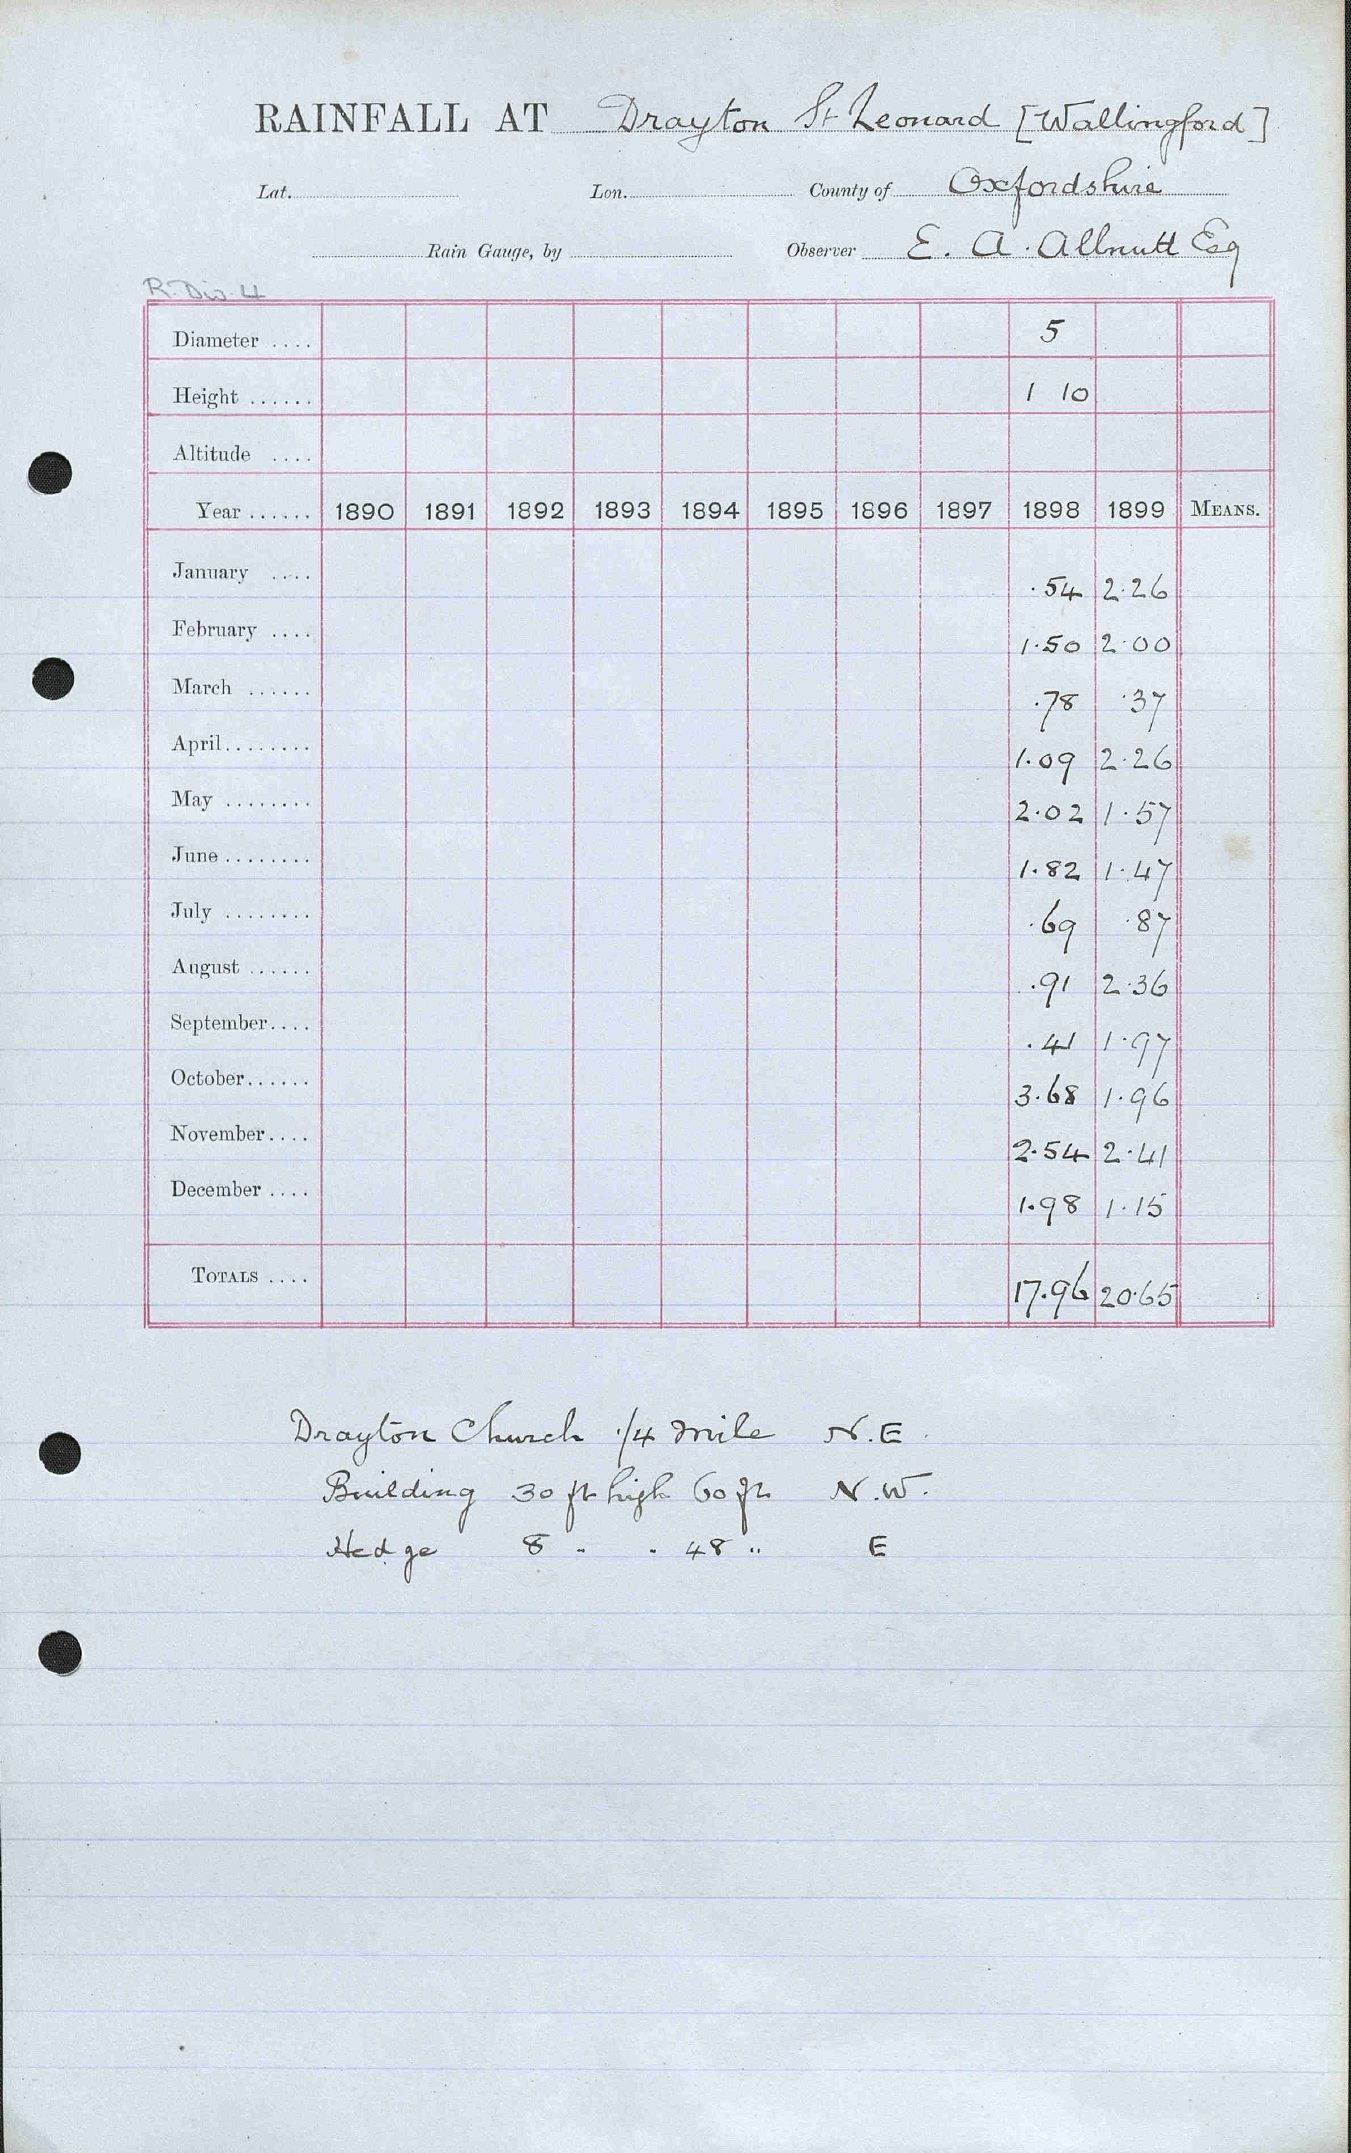 RAINFALL AT Drayton St Leonard [Wallingford]
Lat. Lon. County of Oxfordshire
Rain Gauge, by Observer E. A. Allnutt Esq
R. Div. 4
Diameter .... 5
Height ...... 1 10
Altitude ....
Year ...... 1890 1891 1892 1893 1894 1895 1896 1897 1898 1899 MEANS.
January .... .54 2.26
February .... 1.50 2.00
March ...... .78 .37
April........ 1.09 2.26
May ........ 2.02 1.57
June ........ 1.82 1.47
July ........ .69 .87
August ...... .91 2.36
September.... .41 1.97
October...... 3.68 1.96
November.... 2.54 2.41
December .... 1.98 1.15
TOTALS .... 17.96 20.65
Drayton Church 1/4 mile N.E.
Building 30 ft high 60 ft N.W.
Hedge 8 " " 48 " E